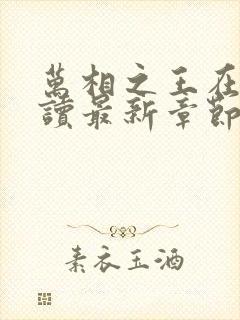 萬相之王在
讀最新章節
素衣玉酒